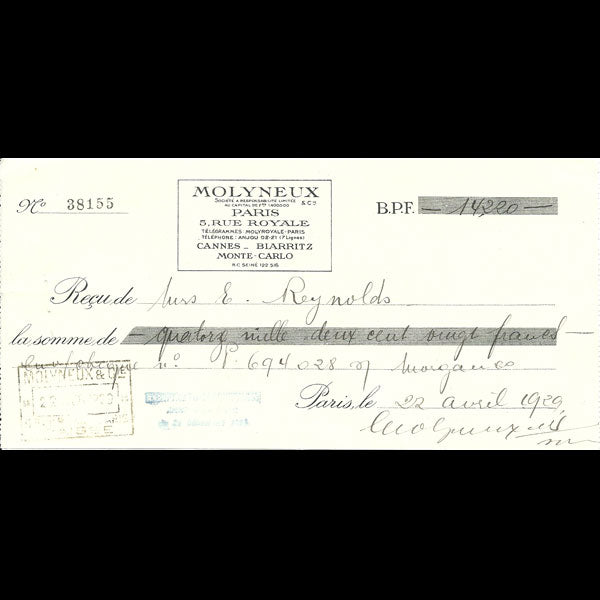 No 38155
MOLYNEUX & Co
SOCIÉTÉ A RESPONSABILITÉ LIMITÉE
AU CAPITAL DE Frs 1.400.000
PARIS
5, RUE ROYALE
TÉLÉGRAMMES: MOLYROYALE-PARIS
TÉLÉPHONE: ANJOU 02-21 (7 Lignes)
CANNES _ BIARRITZ
MONTE-CARLO
R.C. SEINE 122.516
B.P.F. — 14220 —
Reçu de Miss E. Reynolds
la somme de — quatorze mille deux cent vingt francs —
chèque no. P. 694028 Morgan
MOLYNEUX & Co
Paris, le 22 avril 1929
Molyneux